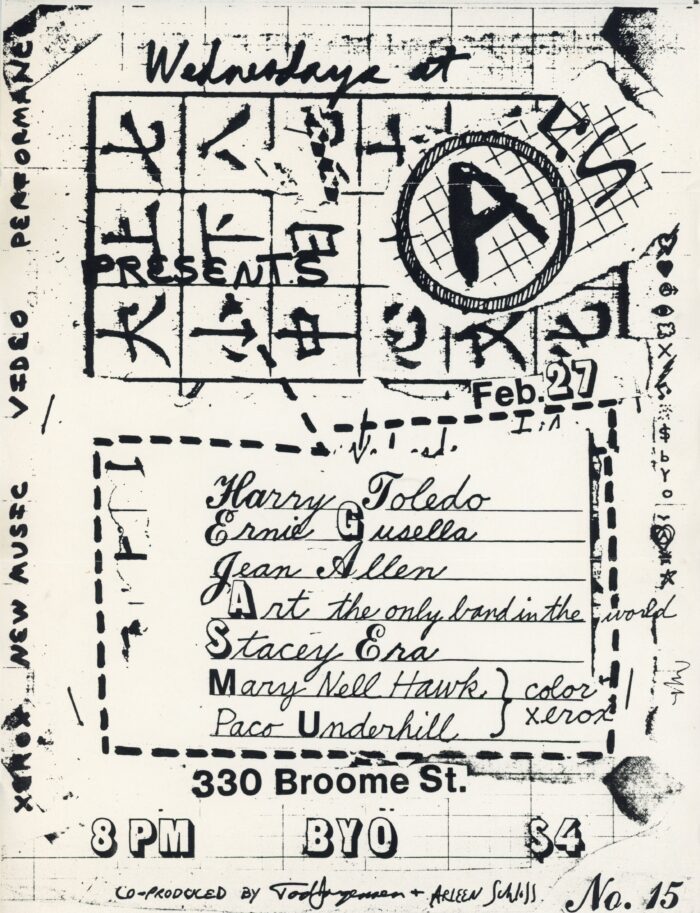 Wednesdays at
A's
七 八
上 下 目
PRESENTS
大 小 中
Feb. 27
Harry Toledo
Ernie Gusella
Jean Allen
Art the only band in the world
Stacey Era
Mary Nell Hawk } color
Paco Underhill } xerox
330 Broome St.
8 PM BYO $4
CO-PRODUCED BY Tod Jorgensen + ARLEEN Schloss
No. 15
XEROX NEW MUSIC VIDEO PERFORMANCE